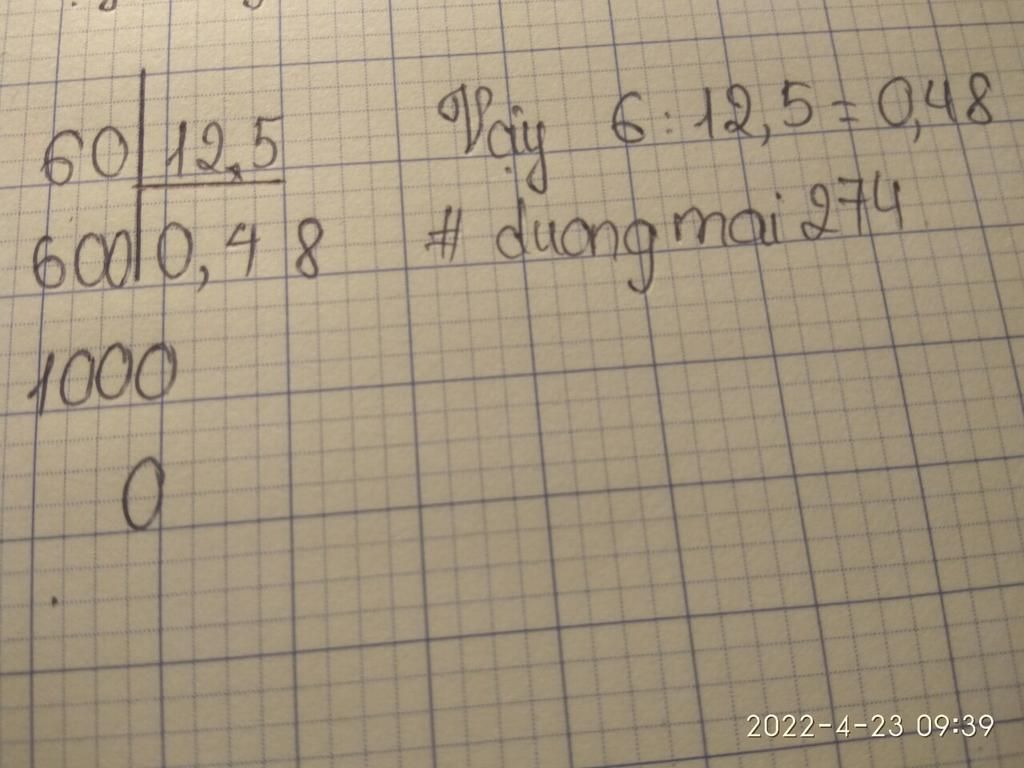 60 12,5
600 0,48
1000
0
Vậy 6 : 12,5 = 0,48
# duongmai 274
2022-4-23 09:39